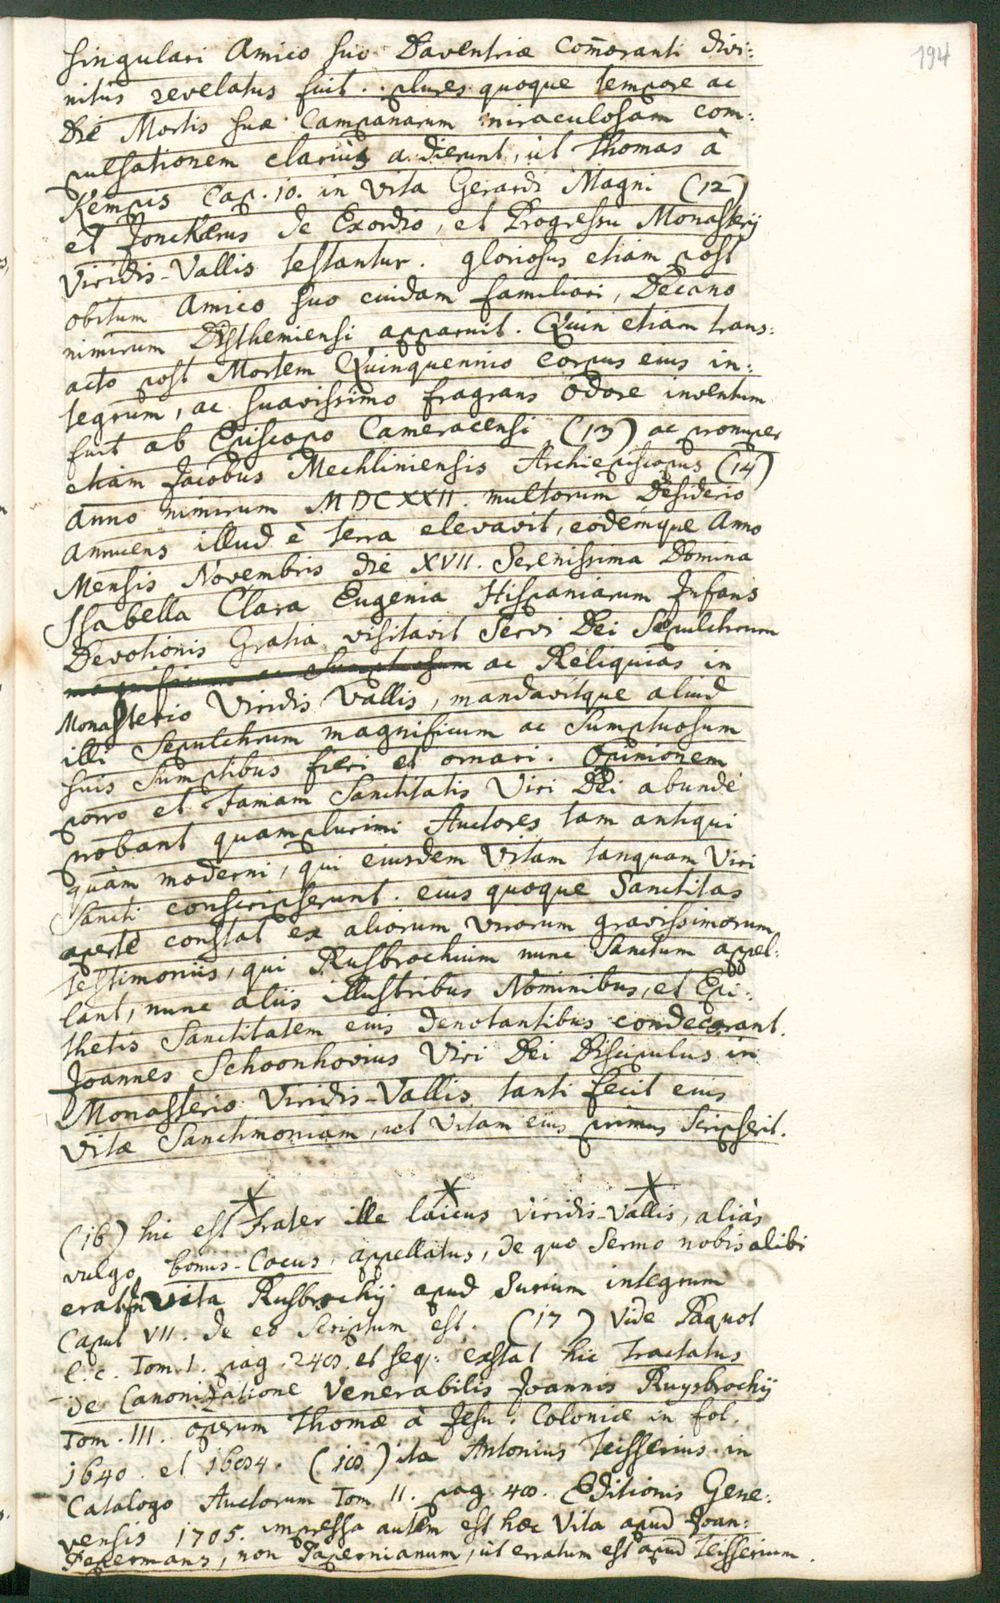 194
singulari Amico suo Daventriæ com̄oranti divi:
nitus revelatus fuit. plures quoque tempore ac
Die Mortis suæ Campanarum miraculosam com:
pulsationem clariùs audierunt, ut Thomas à
Kempis Cap. 10. in Vita Gerardi Magni (12)
et Jonckærus de Exordio, et Progressu Monasterij
Viridis-Vallis testantur. gloriosus etiam post
obitum Amico suo cuidam familiari, Decano
nimirum Disthemiensi apparuit. Quin etiam trans:
acto post Mortem Quinquennio corpus eius in:
tegrum, ac suavissimo fragrans Odore inventum
fuit ab Episcopo Cameracensi (13) ac pronuper
etiam Jacobus Mechliniensis Archiepiscopus (14)
Anno nimirum MDCXXII. multorum Desiderio
Annuens illud è terra elevavit, eodémque Anno
Mensis Novembris die XVII. Serenissima Domina
Isabella Clara Eugenia Hispaniarum Infans
Devotionis Gratia visitavit Servi Dei Sepulchrum
magnificum ac Sumptuosum ac Reliquias in
Monasterio Viridis Vallis, mandavitque aliud
illi Sepulchrum magnificum ac Sumptuosum
suis Sumptibus fieri et ornari. Opinionem
porro et famam Sanctitatis Viri Dei abundè
probant quamplurimi Auctores tam antiqui
quàm moderni, qui eiusdem Vitam tanquam Viri
Sancti conscripserunt. eius quoque Sanctitas
apertè constat ex aliorum Virorum gravissimorum
testimoniis, qui Rusbrochium nunc Sanctum appel:
lant, nunc aliis illustribus Nominibus, et Epi:
thetis Sanctitatem eius denotantibus condecorant.
Joannes Schoonhovius Viri Dei Discipulus in
Monasterio Viridis-Vallis tanti fecit eius
Vitæ Sanctimoniam, ut Vitam eius primus scripserit.
(16) hic est Frater ille laicus Viridis-Vallis, aliàs
vulgo bonus-Cocus appellatus, de quo Sermo nobis alibi
erat. In Vita Rusbrochij apud Surium integrum
Caput VII. de eo scriptum est. (17) Vide Paquot
l. c. Tom. 1. pag. 248. et seq. extat hic Tractatus
de Canonizatione Venerabilis Joannis Ruysbrochij
Tom. III. operum Thomæ à Jesu. Coloniæ in fol.
1640. et 1684. (18) ita Antonius Teisserius in
Catalogo Auctorum Tom II. pag. 48. Editionis Gene:
vensis 1705. impressa autem est hæc Vita apud Joan:
Pepermans, non Papernianum, ut erratum est apud Teisserium.